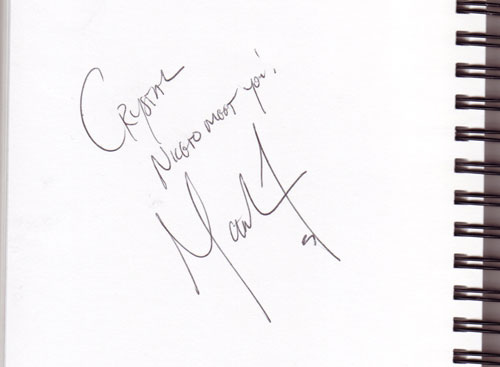 Crystal
Nice to meet you!